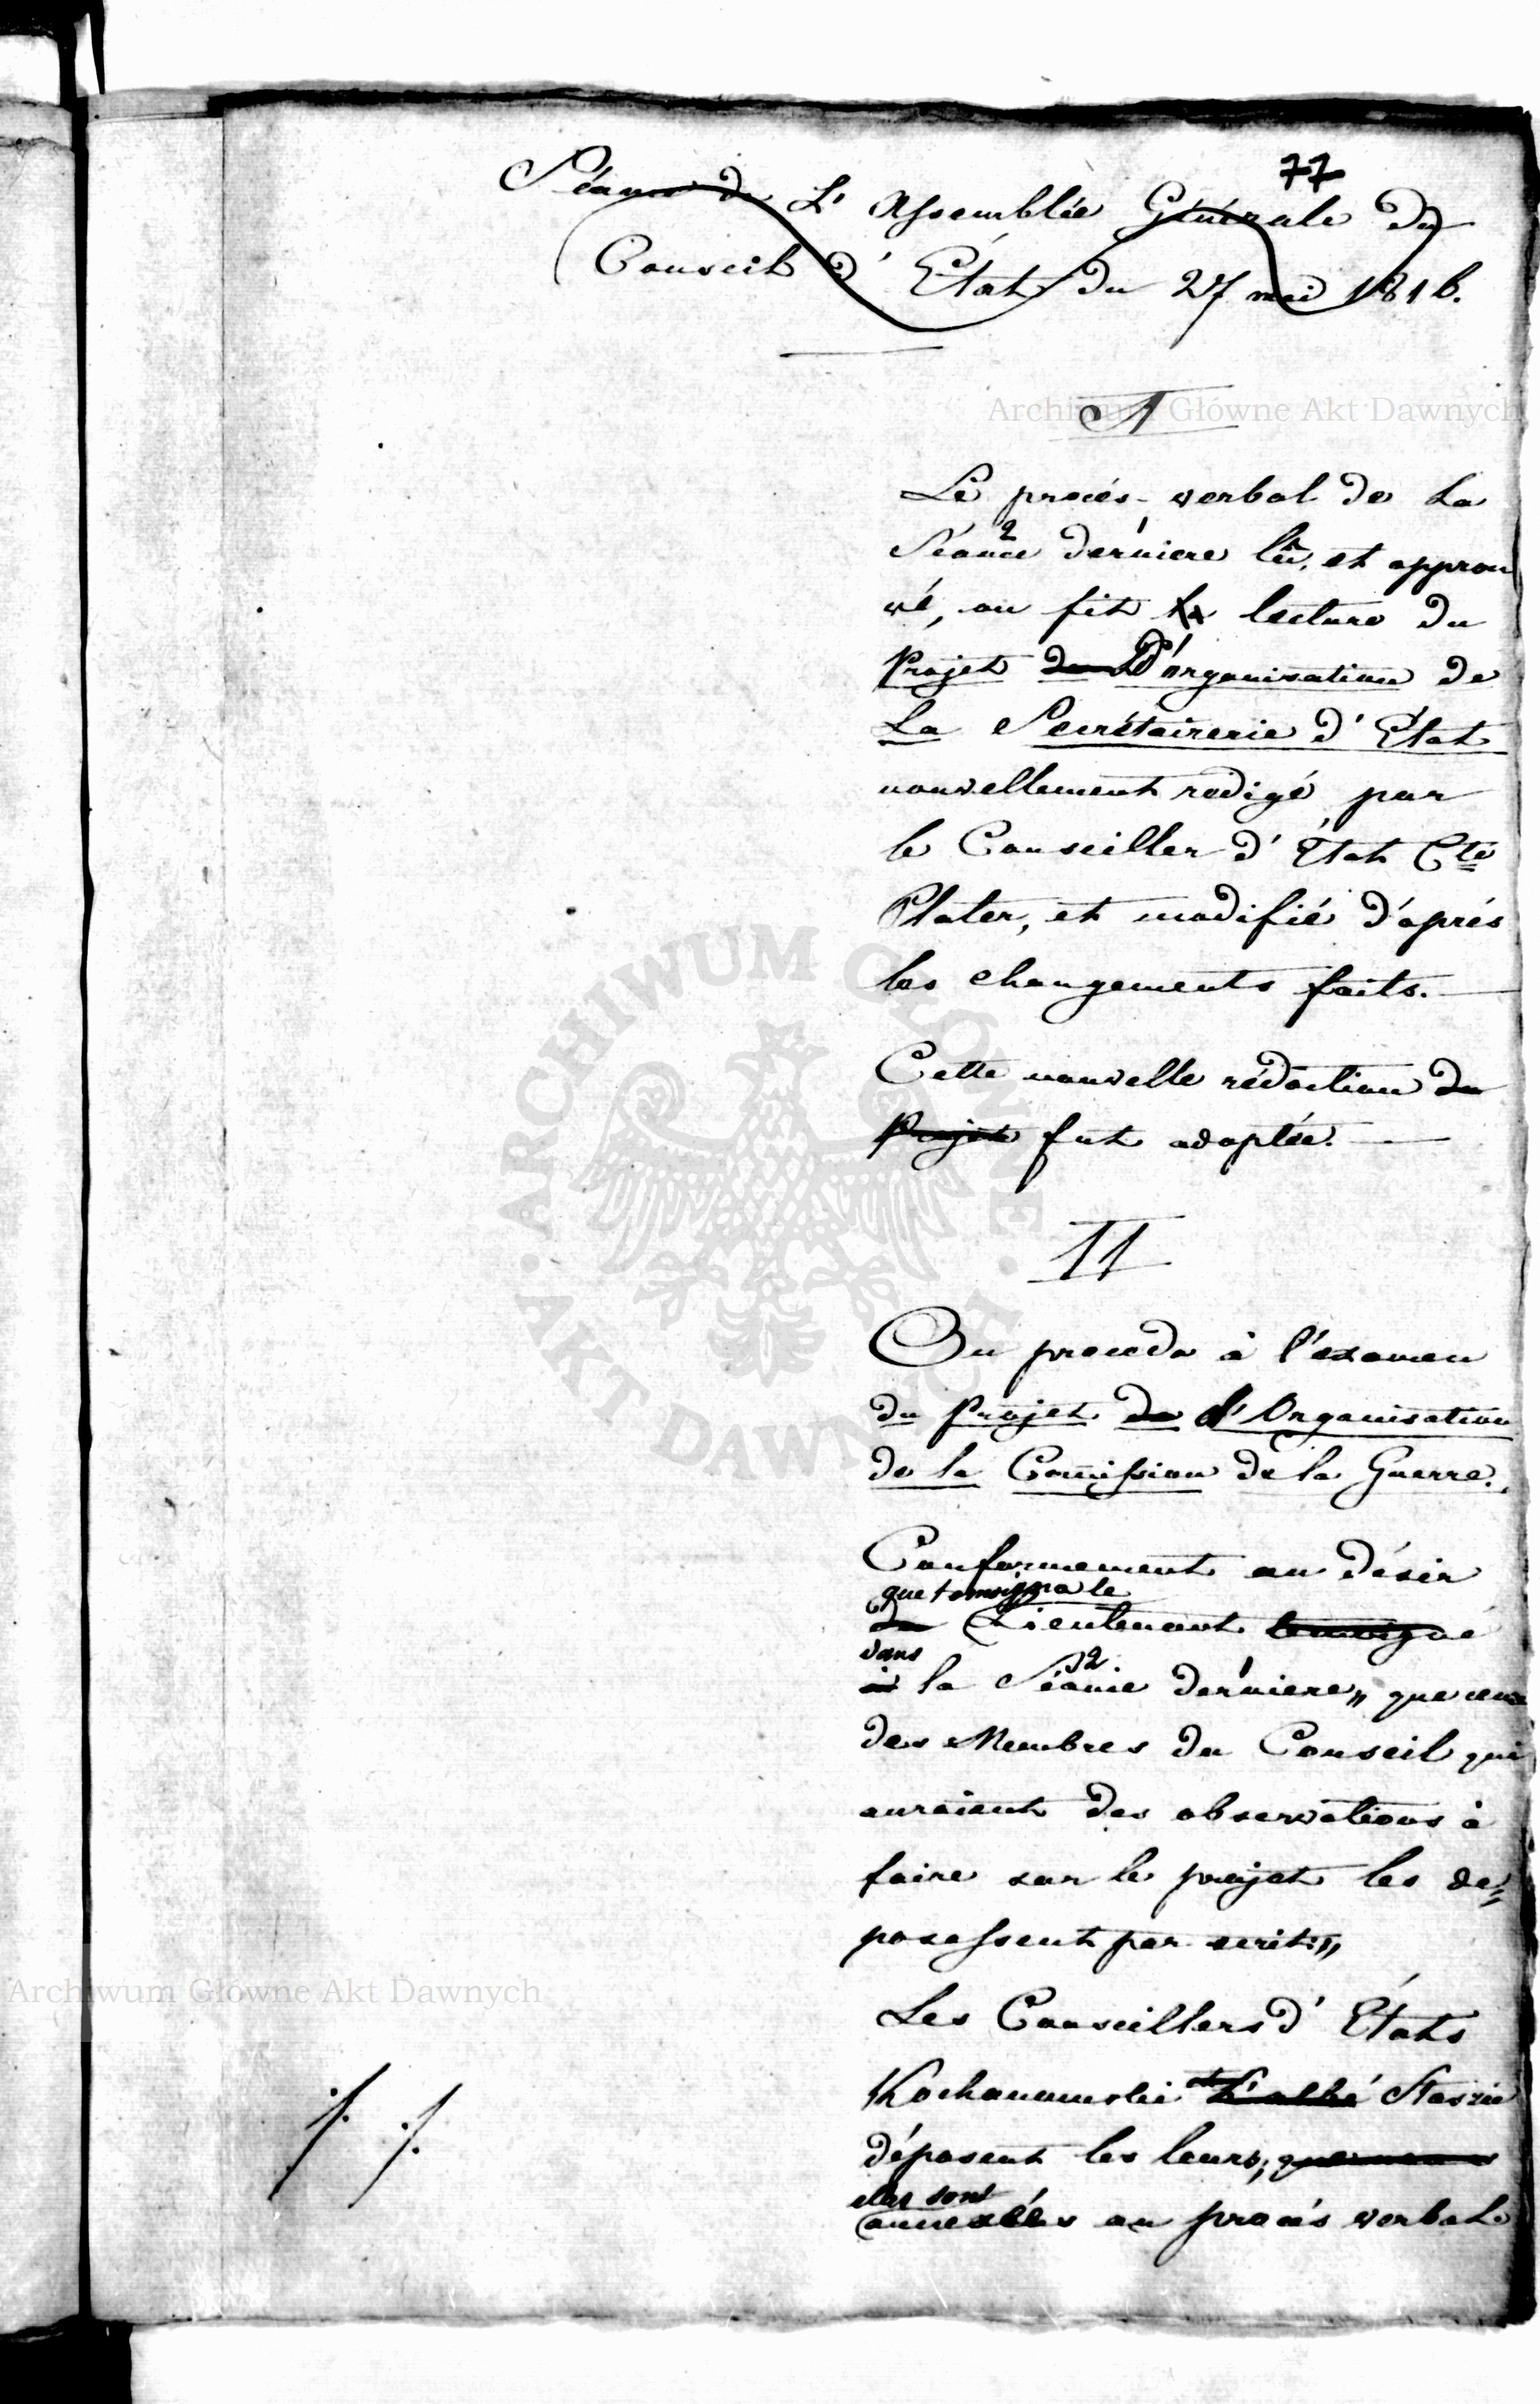 77
Séance de L'Assemblée Générale du
Conseil d'État du 27 mai 1816.
Archiwum Główne Akt Dawnych
I
Le procés-verbal de La
Séance derniere lû, et approu
vé, on fit la lecture du
Projet de L'd'organisation de
La Secrétairerie d'État
nouvellement redigé par
le Conseiller d'État Cte
Plater, et modifié d'aprés
les changements faits.
Cette nouvelle rédaction du
Projet fut adoptée.
II
On proceda à l'examen
du Projet de d'Organisation
de la Comission de la Guerre.
Conformement au désir
que temoigna le
du Lieutenant temoigné
dans
à la Séance derniere,, que ceux
des Membres du Conseil qui
auraient des observations à
faire sur le projet les de=
posassent par ecrit,,
Les Conseillers d'États
Kochanowski et L'abbé Staszic
déposent les leurs,
elles sont
annexées au procés verbal.
ARCHIWUM GŁÓWNE AKT DAWNYCH
Archiwum Główne Akt Dawnych